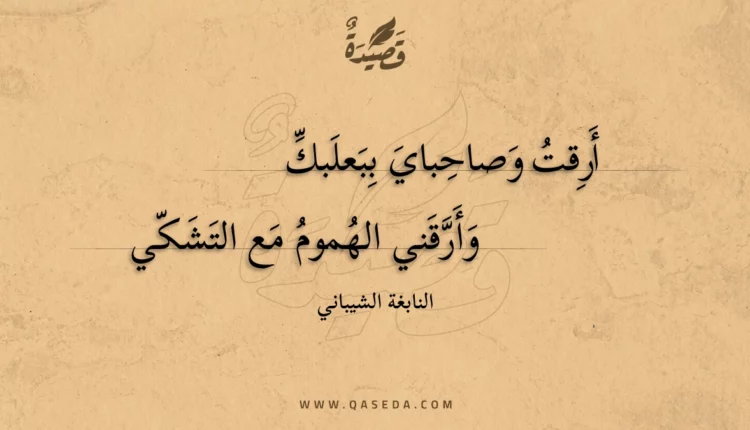 قَصِيدَةٌ
أَرِقتُ وَصاحِبايَ بِبَعلَبكِّ
وَأَرَّقَني الهُمومُ مَع التَشَكّي
النابغة الشيباني
WWW.QASEDA.COM